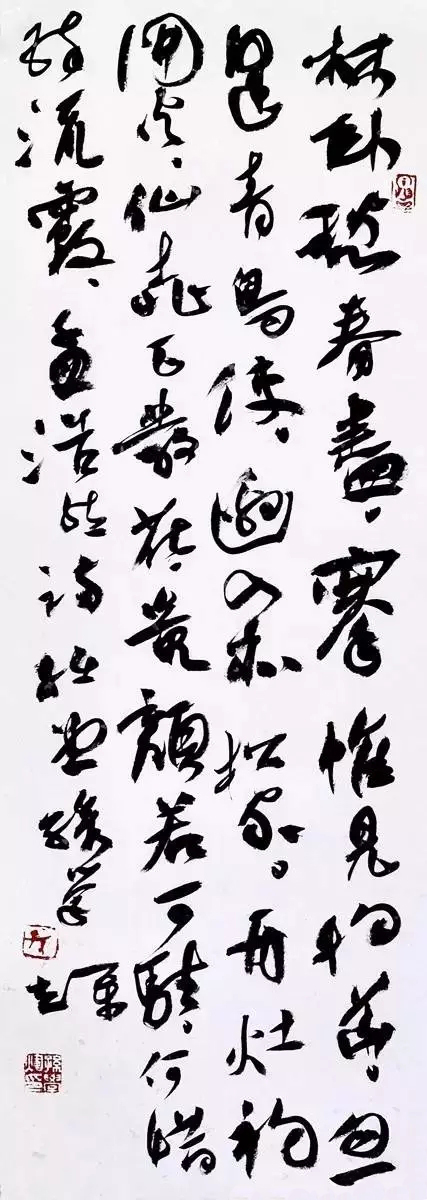 林卧愁春盡、搴帷見物華、忽
逢青鳥使、邀入赤松家。丹灶初
開火、仙桃正發花、童顏若可駐、何惜
醉流霞、孟浩然詩